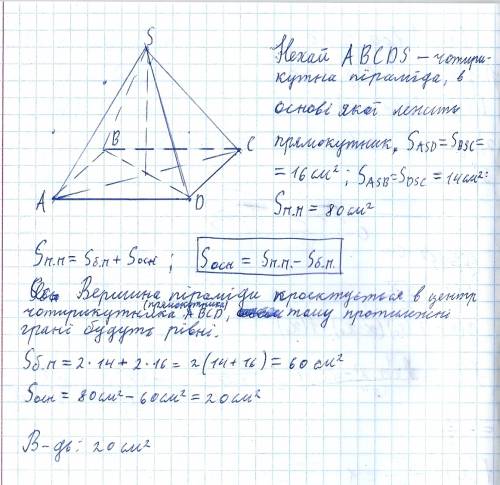 S
B
C
A
D
Нехай ABCDS – чотири-
кутна піраміда, в
основі якої лежить
прямокутник. S_ASD = S_BSC =
= 16 см²; S_ASB = S_DSC = 14 см²
S_п.п = 80 см²
S_п.п = S_б.п + S_осн ; S_осн = S_п.п. – S_б.п.
Вершина піраміди проєктується в центр
(прямокутника)
чотирикутника ABCD, тому протилежні
грані будуть рівні.
S_б.п = 2·14 + 2·16 = 2(14+16) = 60 см²
S_осн = 80 см² – 60 см² = 20 см²
В-дь: 20 см²